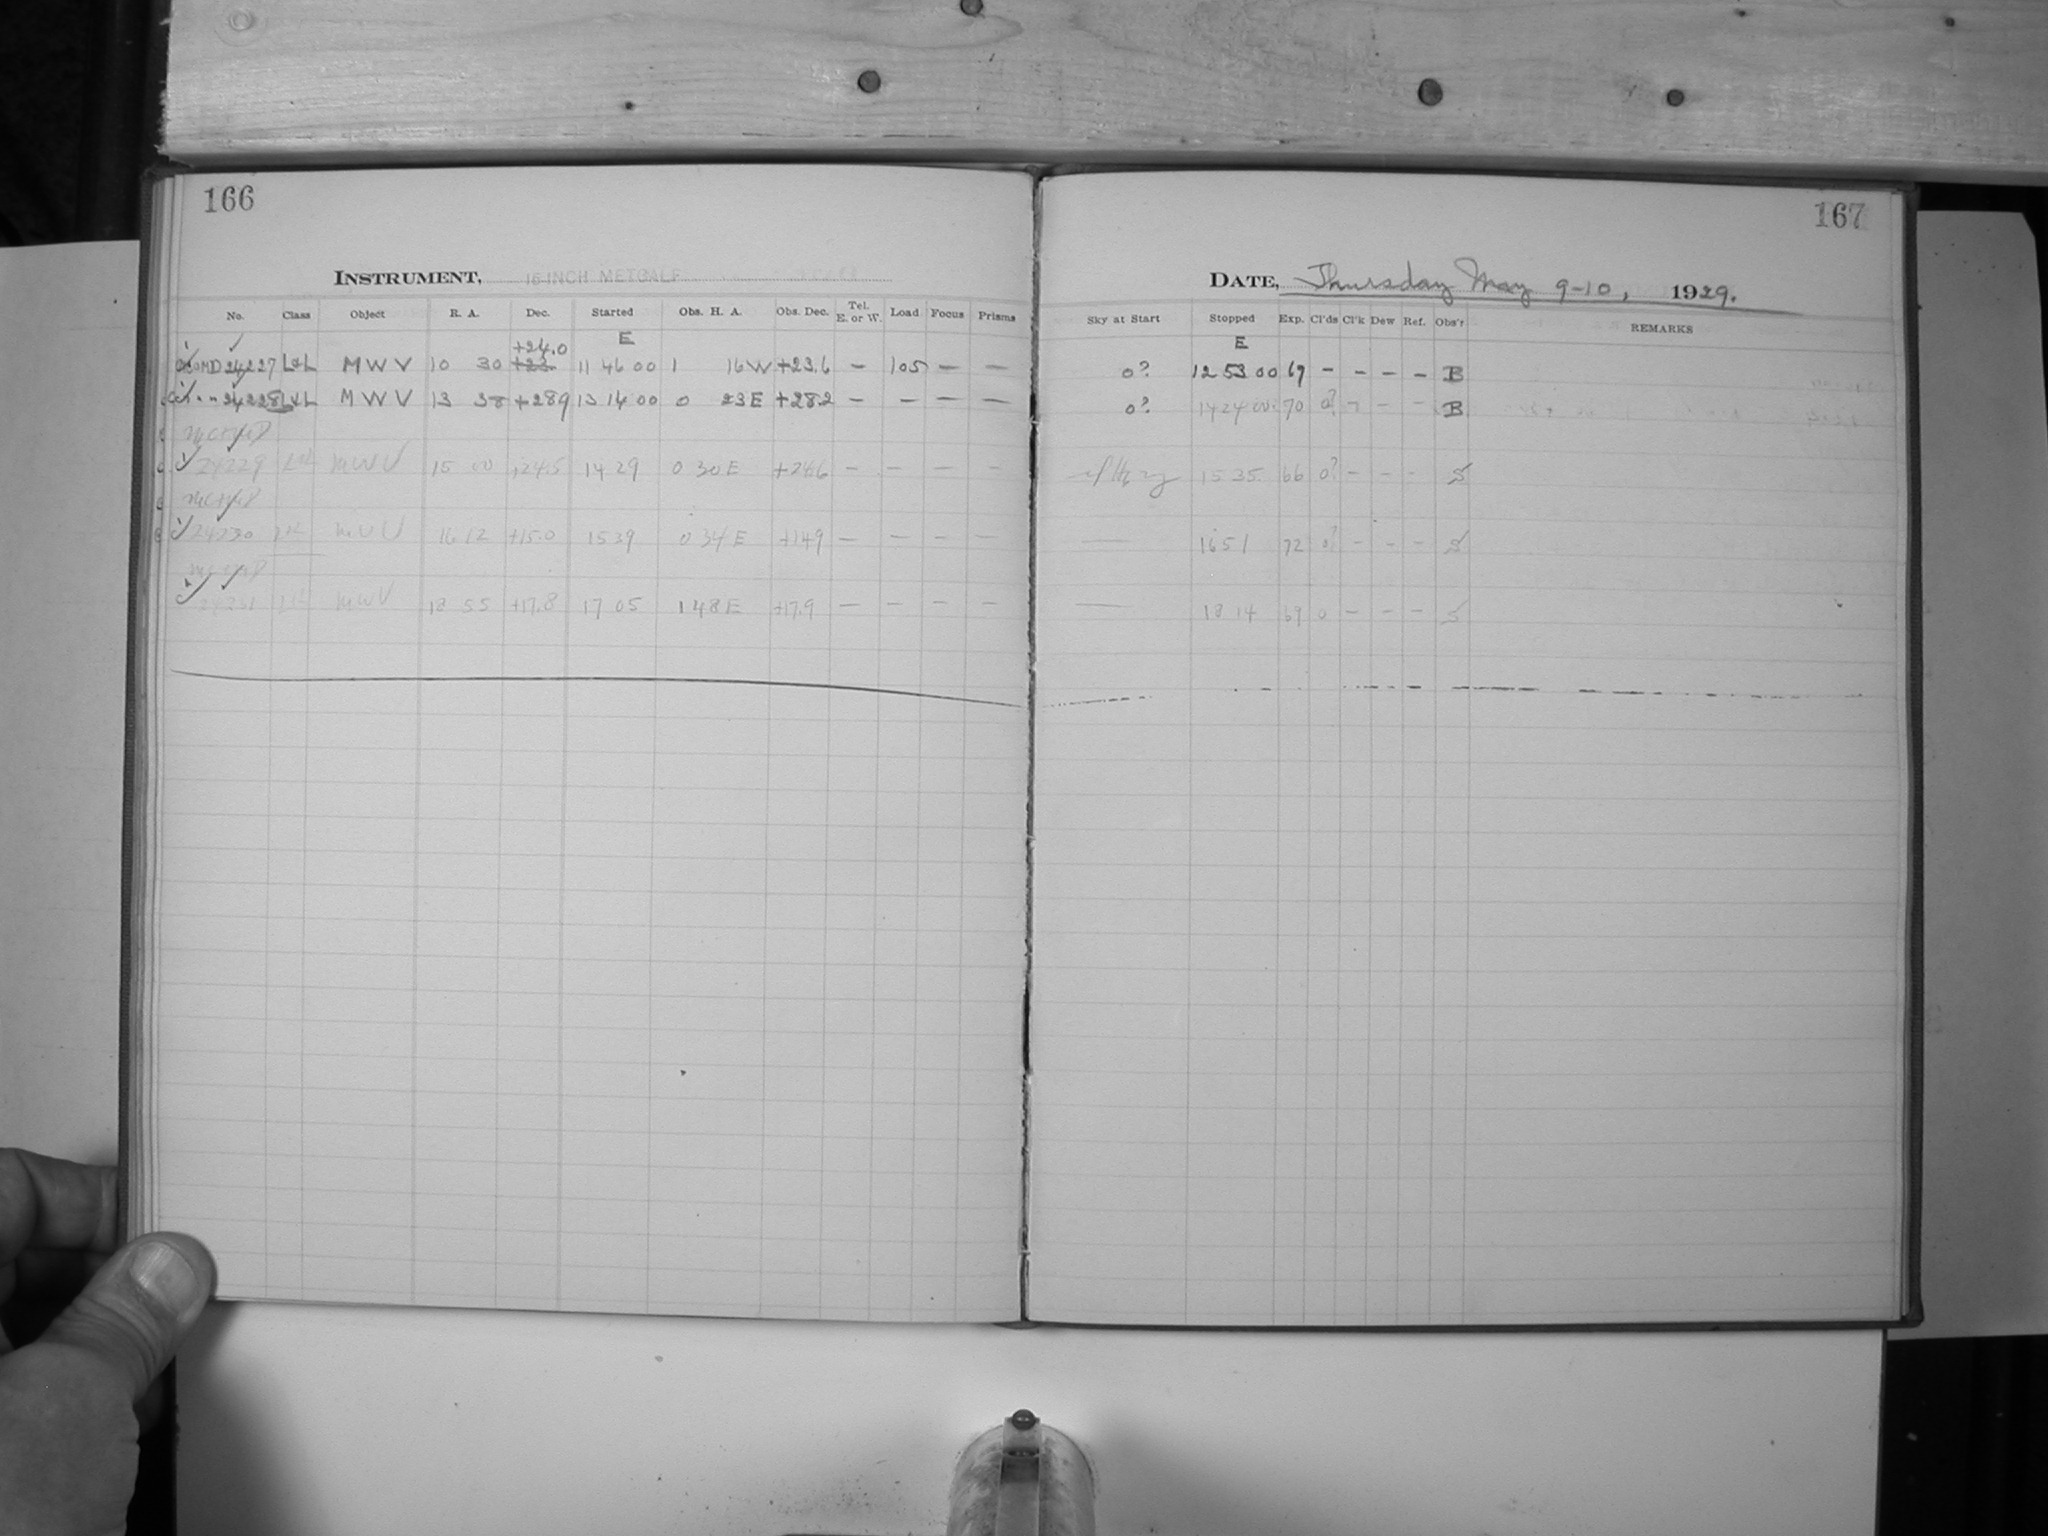 166
INSTRUMENT, 16-INCH METCALF
No. Class Object R. A. Dec. Started Obs. H. A. Obs. Dec. Tel. E. or W. Load Focus Prisms
E
+24.0
24227 L&L M W V 10 30 +23. 11 46 00 1 16 W +23.6 — 105 — —
" " 24228 L&L M W V 13 38 +28.9 13 14 00 0 23 E +28.2 — — — —
24229 MWV 15 00 +24.5 14 29 0 30 E +24.6 — — — —
24230 MWV 16 12 +15.0 15 39 0 34 E +14.9 — — — —
24231 MWV 18 55 +17.8 17 05 1 48 E +17.9 — — — —
167
DATE, Thursday May 9-10, 1929.
Sky at Start Stopped Exp. Cl'ds Cl'k Dew Ref. Obs'r REMARKS
E
0? 12 53 00 67 – – – – B
0? 14 24 00 70 0? – – – B
15 35 66 0? – – – S
— 16 51 72 0? – – – S
— 18 14 69 0 – – – S